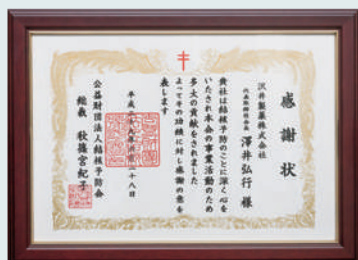 感謝状
沢井製薬株式会社
代表取締役社長 澤井弘行 様
貴社は結核予防のことに深く心を
いたされ本会の事業活動のため
多大の貢献をされました
よってその功績に対し感謝の意を
表します
公益財団法人結核予防会
総裁 秋篠宮紀子